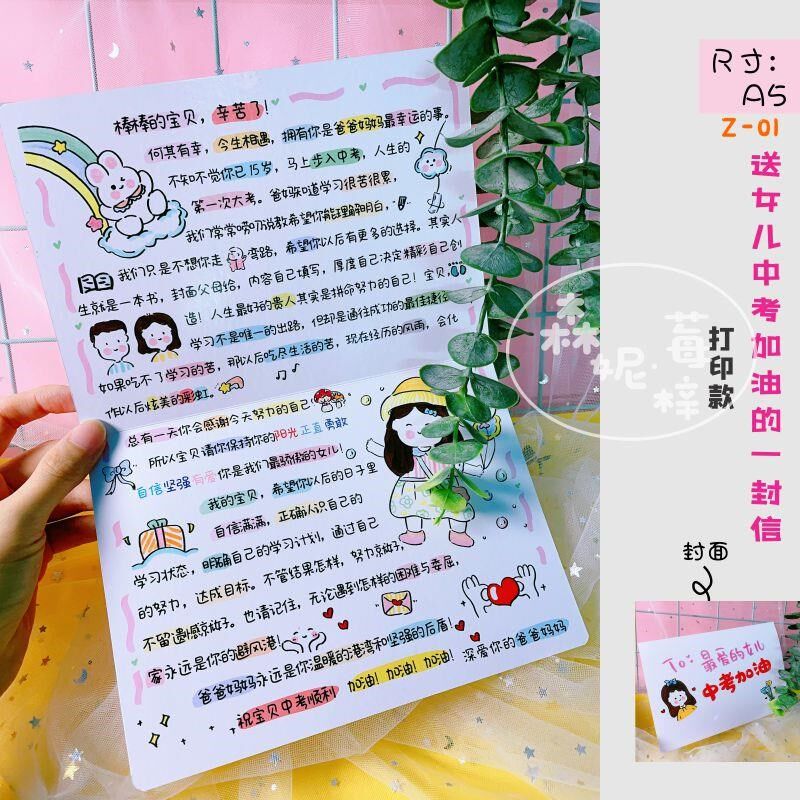 棒棒的宝贝，辛苦了！
何其有幸，今生相遇，拥有你是爸爸妈妈最幸运的事。
不知不觉你已15岁，马上步入中考，人生的
第一次大考。爸妈知道学习很苦很累，
我们常常唠叨说教希望你能理解明白，
我们只是不想你走弯路，希望你以后有更多的选择。其实人
生就是一本书，封面父母给，内容自己填写，厚度自己决定精彩自己创
造！人生最好的贵人其实是拼命努力的自己！宝贝，
学习不是唯一的出路，但却是通往成功的最佳捷径
如果吃不了学习的苦，那以后吃尽生活的苦，现在经历的风雨，会化
作以后炫美的彩虹。
总有一天你会感谢今天努力的自己
所以宝贝请你保持你的阳光正直勇敢
自信坚强有爱你是我们最骄傲的女儿！
我的宝贝，希望你以后的日子里
自信满满，正确认识自己的
学习状态，明确自己的学习计划，通过自己
的努力，达成目标。不管结果怎样，努力就好，
不留遗憾就好。也请记住，无论遇到怎样的困难与委屈，
家永远是你的避风港！
爸爸妈妈永远是你温暖的港湾和坚强的后盾！
加油！加油！加油！深爱你的爸爸妈妈
祝宝贝中考顺利
尺寸：
A5
Z-01
送女儿中考加油的一封信
打印款
森妮·莓梓
封面
To：最爱的女儿
中考加油